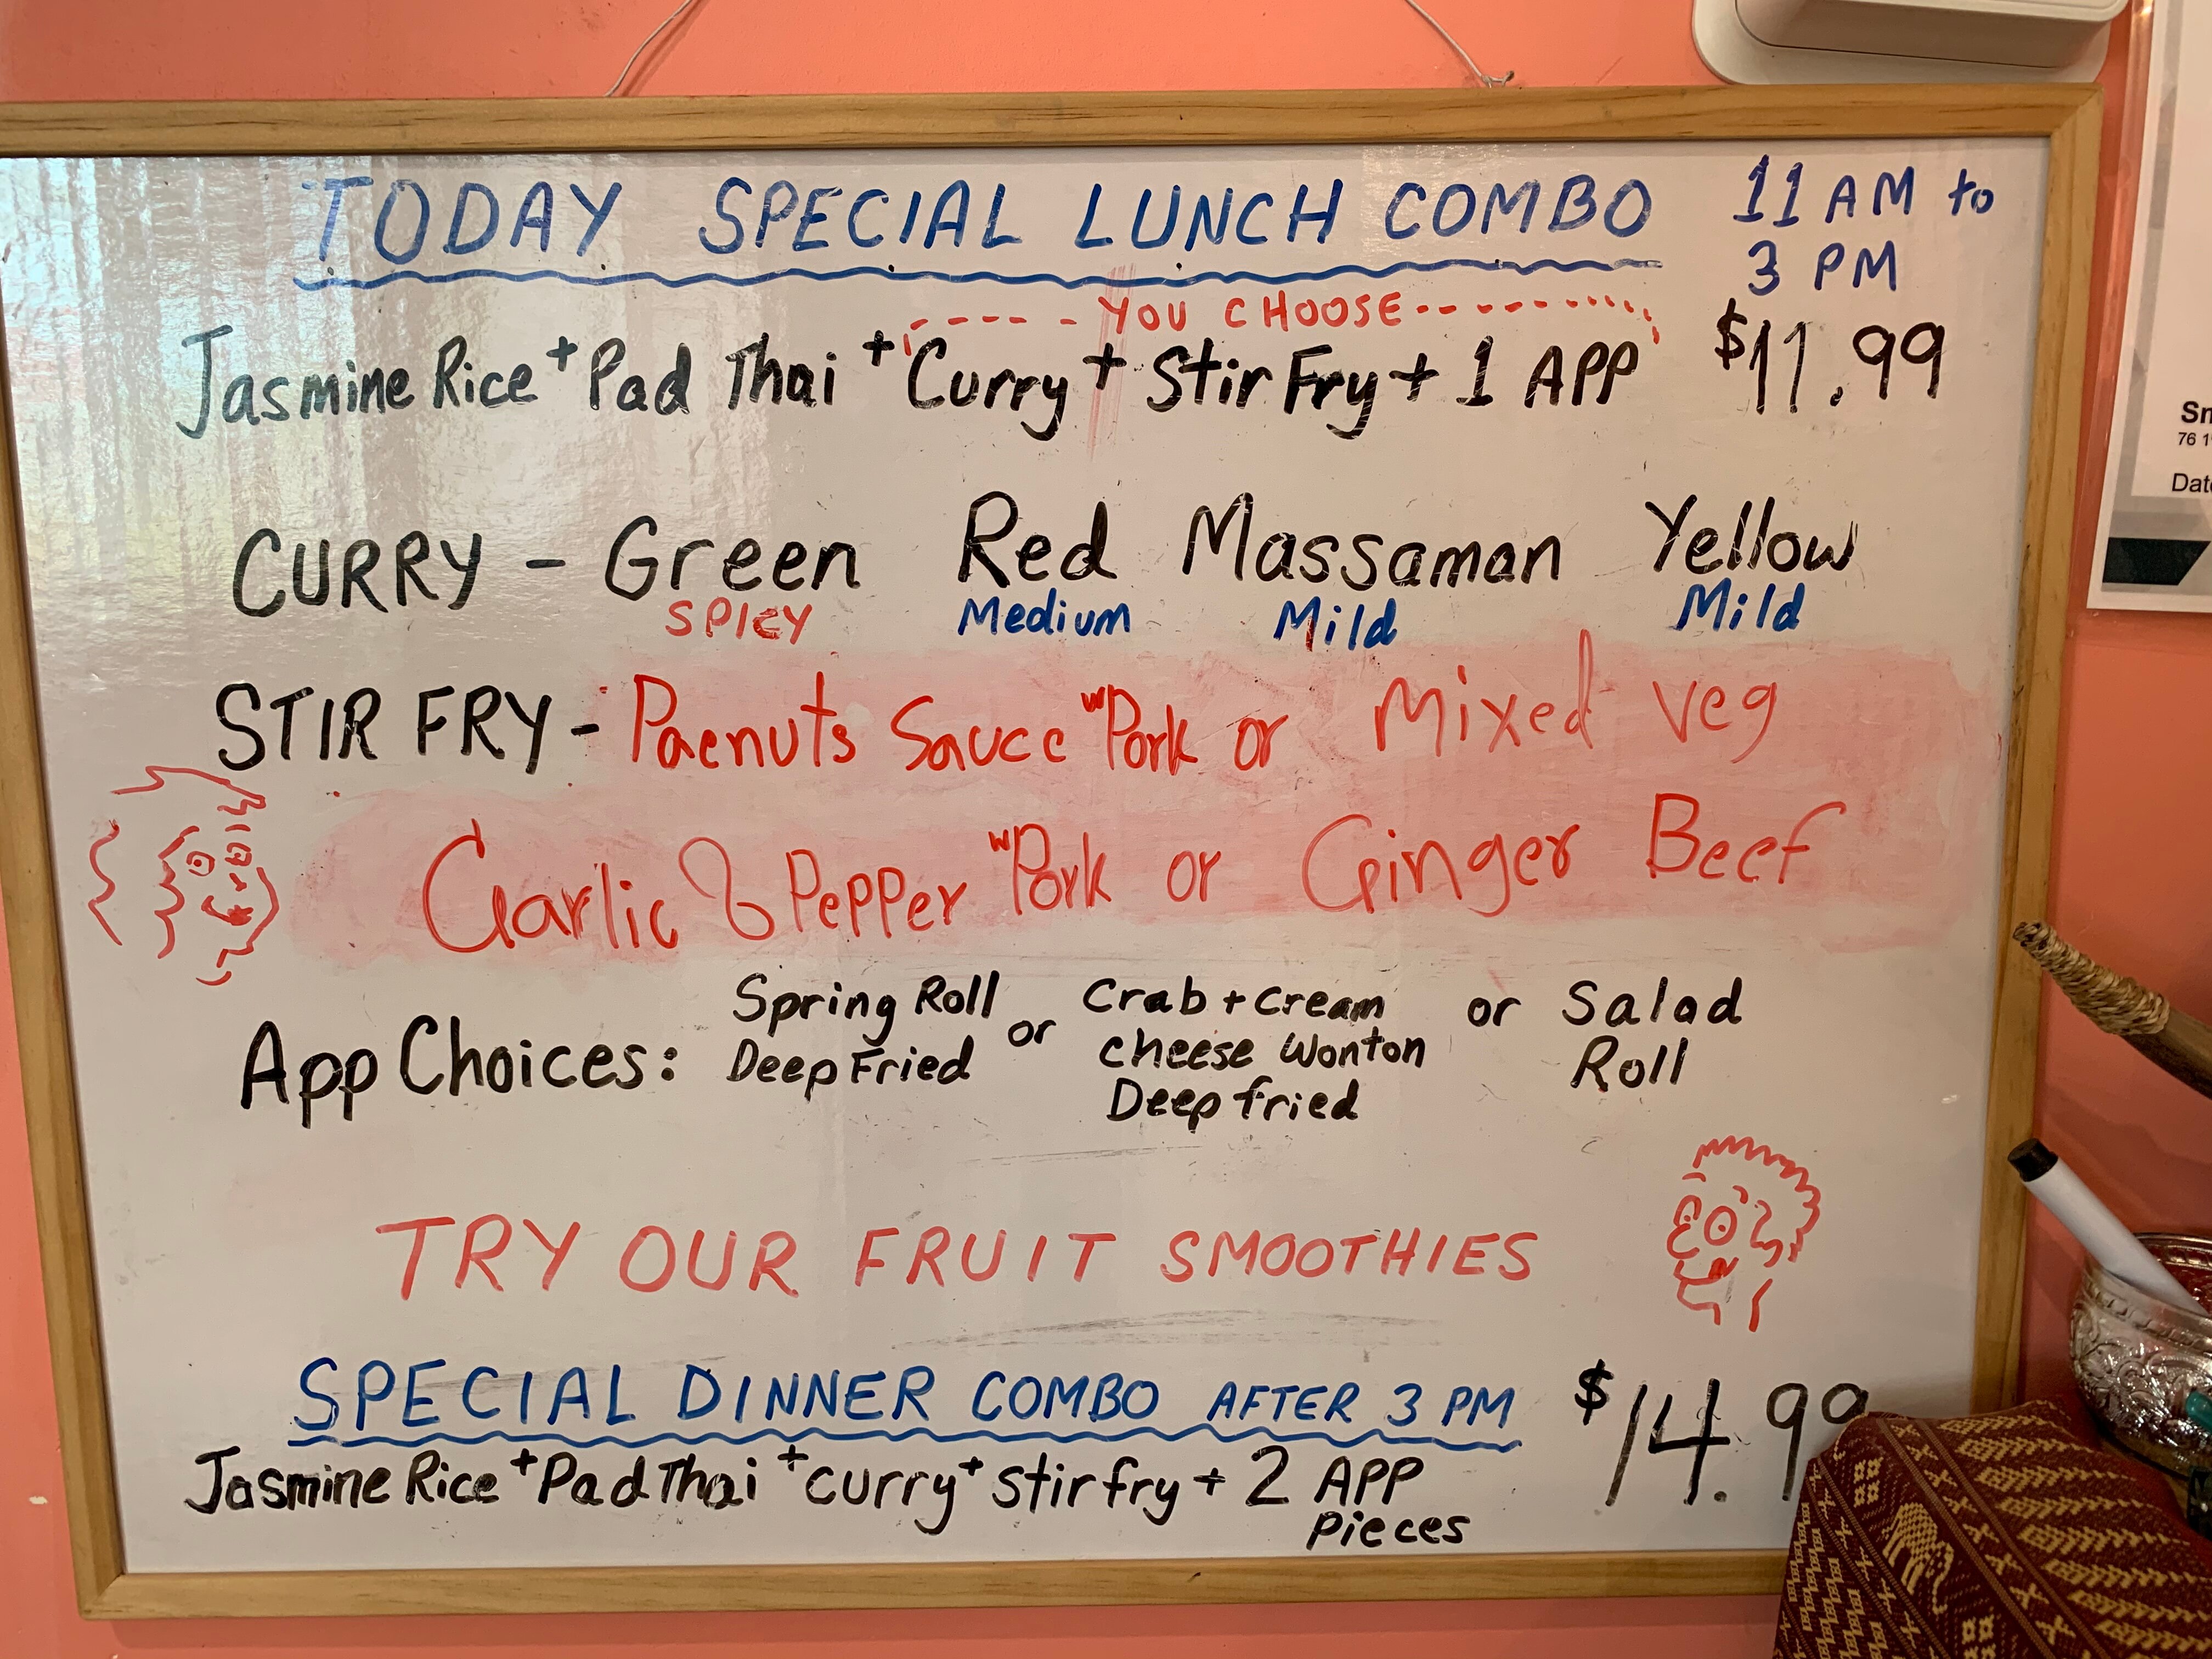 TODAY SPECIAL LUNCH COMBO 11 AM to
3 PM
YOU CHOOSE
Jasmine Rice + Pad Thai + Curry + Stir Fry + 1 APP $11.99
CURRY - Green Red Massaman Yellow
SPICY Medium Mild Mild
STIR FRY - Paenuts Sauce w Pork or Mixed veg
Garlic & Pepper w Pork or Ginger Beef
App Choices: Spring Roll Deep Fried or Crab + Cream cheese Wonton Deep fried or Salad Roll
TRY OUR FRUIT SMOOTHIES
SPECIAL DINNER COMBO AFTER 3 PM $14.99
Jasmine Rice + Pad Thai + curry + stir fry + 2 APP
pieces
76 1